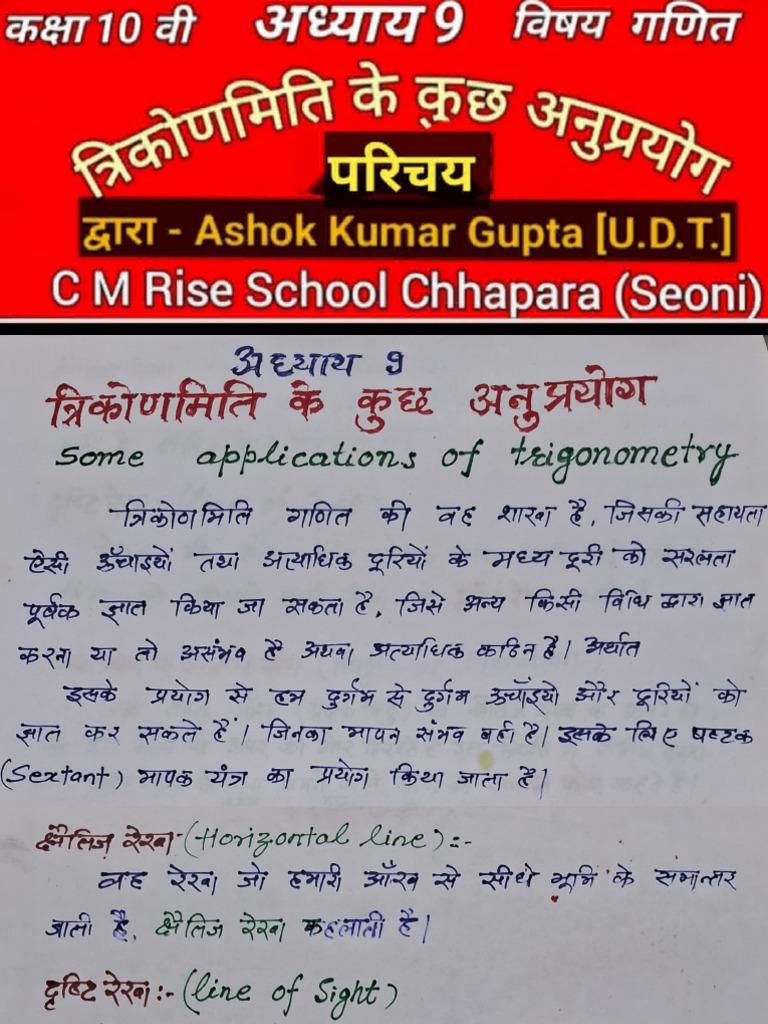 कक्षा 10 वी अध्याय 9 विषय गणित
त्रिकोणमिति के कुछ अनुप्रयोग
परिचय
द्वारा - Ashok Kumar Gupta [U.D.T.]
C M Rise School Chhapara (Seoni)
अध्याय 9
त्रिकोणमिति के कुछ अनुप्रयोग
some applications of trigonometry
त्रिकोणमिति गणित की वह शाखा है, जिसकी सहायता
ऐसी ऊँचाइयों तथा अत्याधिक दूरियों के मध्य दूरी को सरलता
पूर्वक ज्ञात किया जा सकता है, जिसे अन्य किसी विधि द्वारा ज्ञात
करना या तो असंभव है अथवा अत्यधिक कठिन है। अर्थात
इसके प्रयोग से हम दुर्गम से दुर्गम ऊचाँइयो और दूरियों को
ज्ञात कर सकते हैं। जिनका मापन संभव नहीं है। इसके लिए षष्टक
(Sextant) मापक यंत्र का प्रयोग किया जाता है।
क्षैतिज रेखा-(Horizontal line):-
वह रेखा जो हमारी आँख से सीधे भूमि के समान्तर
जाती है, क्षैतिज रेखा कहलाती है।
दृष्टि रेखा:-(line of Sight)